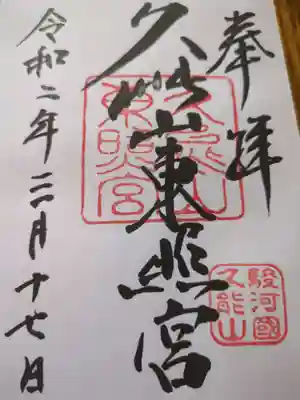 奉拝
久能山東照宮
久能山
東照宮
駿河國
久能山
令和二年二月十七日